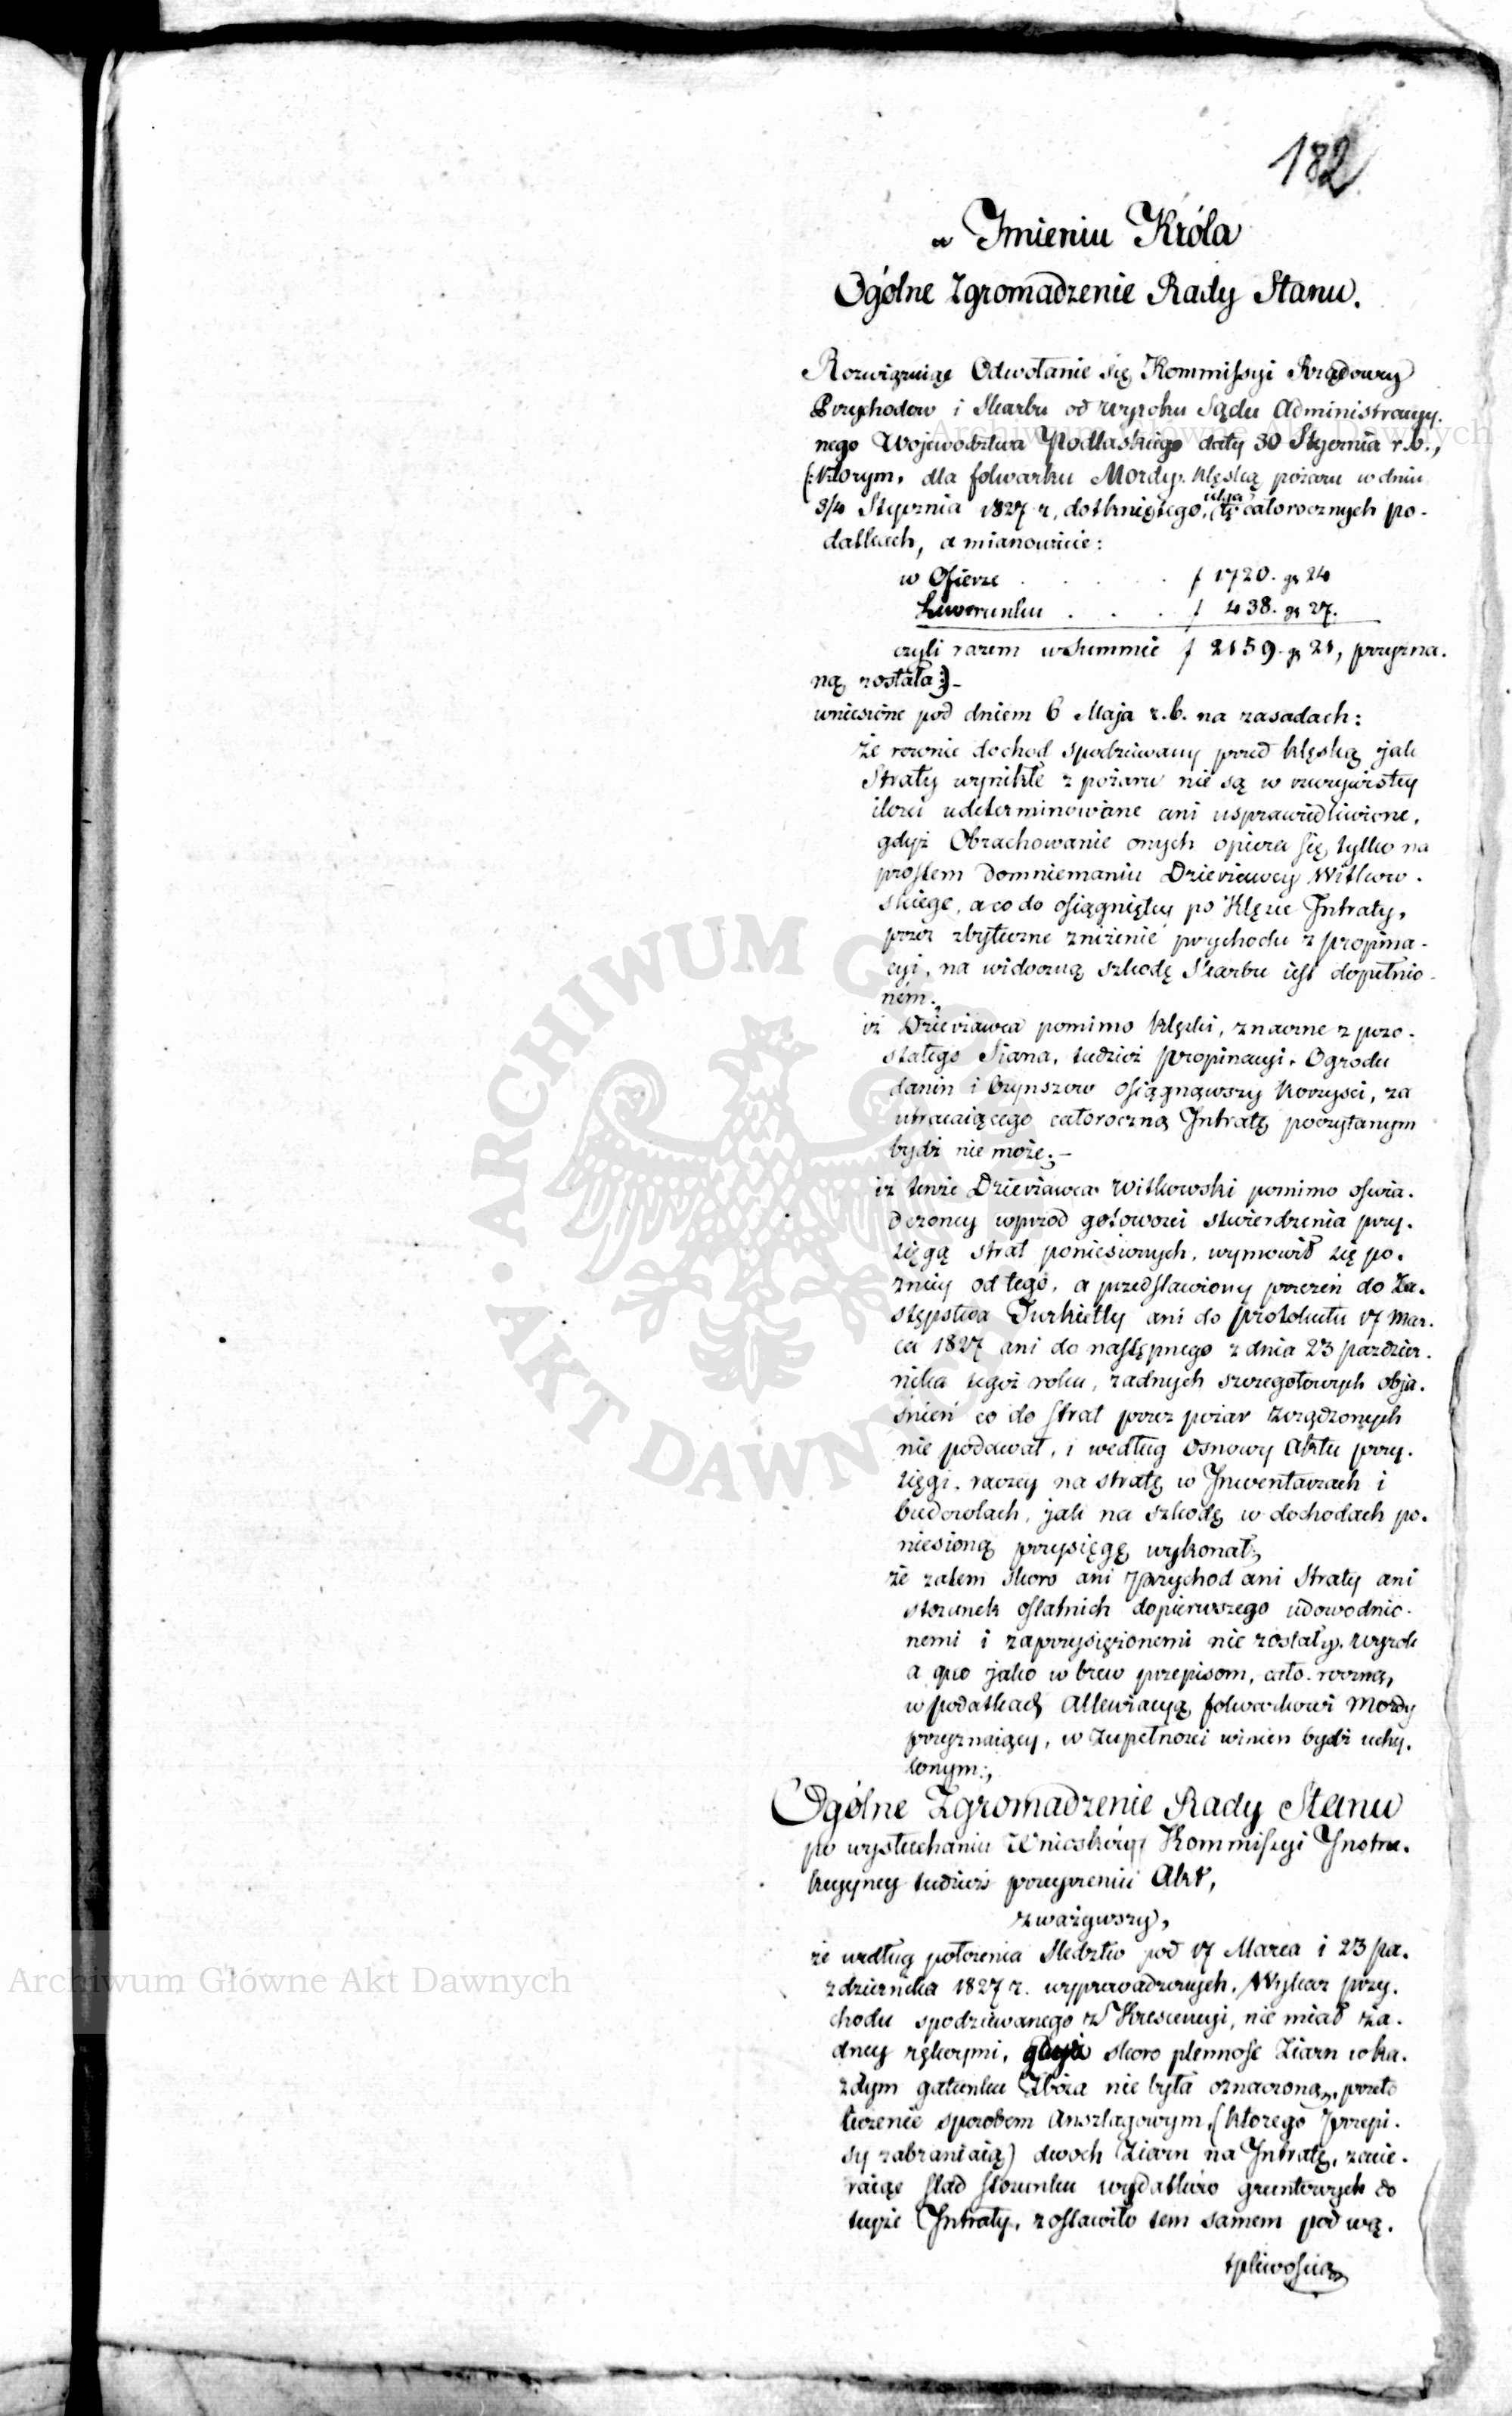 182
w Jmieniu Króla
Ogólne Zgromadzenie Rady Stanu.
Rozwiązuiąc Odwołanie się Kommissyi Rządowey
Przychodow i Skarbu od wyroku Sądu Administracyy.
nego Wojewodztwa Podlaskiego daty 30 Stycznia r.b.,
(:ktorym, dla folwarku Mordy, klęską pożaru w dniu
3/4 Stycznia 1827 r, dotkniętego, ulga w całorocznych po-
datkach, a mianowicie:
w Ofierze . . . . . f 1720. gr 24
Liwerunku . . . f 438. gr 27.
czyli razem w Summie f 2159. gr 21, przyzna.
ną została:)-
wniesione pod dniem 6 Maja r.b. na zasadach:
że rownie dochod spodziewany przed klęską jak
Straty wynikłe z pożaru nie są w rzeczywistey
ilości udeterminowane ani usprawiedliwione,
gdyż Obrachowanie onych opiera się tylko na
prostem domniemaniu Dzierżawcy Witkow.
skiego, a co do osiągniętey po Klęsce Jntraty,
przez zbyteczne zniżenie przychodu z propina-
cyi, na widoczną szkodę Skarbu iest dopełnio-
ném.,
iż Dzierżawca pomimo klęski, znaczne z pozo.
stałego Siana, tudzież propinacyi, Ogrodu
danin i Czynszow osiągnąwszy korzyści, za
utracaiącego całoroczną Jntratę poczytanym
bydź nie może;-
iż tenże Dzierżawca Witkowski pomimo oświa.
dczoney wprzod gotowości stwierdzenia przy.
sięgą strat poniesionych, wymowił się po.
zniey od tego, a przedstawiony przezeń do Za.
stępstwa Turkietty ani do protokułu 17 Mar.
ca 1827 ani do następnego z dnia 23 paździer.
nika tegoż roku, żadnych szczegołowych obja.
śnień co do strat przez pożar zrządzonych
nie podawał, i według Osnowy Aktu przy.
sięgi, raczey na stratę w Jnwentarzach i
budowlach, jak na szkodę w dochodach po.
niesioną przysięgę wykonał;
że zatem skoro ani przychod ani Straty ani
stosunek ostatnich do pierwszego udowodnio.
nemi i zaprzysiężonemi nie zostały, wyrok
a quo jako wbrew przepisom, cało-roczną,
w podatkach Allewiacyą folwarkowi Mordy
przyznaiący, w Zupełności winien bydź uchy.
lonym;,
Ogólne Zgromadzenie Rady Stanu
po wysłuchaniu Wnioskow Kommissyi Jnstru.
kcyyney tudzież przeyrzeniu Akt,
zważywszy,
że według położenia Sledztw pod 17 Marca i 23 pa.
zdziernika 1827 r. wyprowadzonych, Wykaz przy.
chodu spodziewanego z Krescencyi, nie miał ża.
dney rękoymi, gdyż skoro plenność Ziarn w ka.
żdym gatunku Zboża nie była oznaczoną, przeto
liczenie sposobem Anszlagowym (ktorego przepi.
sy zabraniaią) dwoch Ziarn na Jntratę, zacie.
raiąc ślad stosunku wydatkow gruntowych do
teyże Jntraty, zostawiło tem samem pod wą.
tpliwością